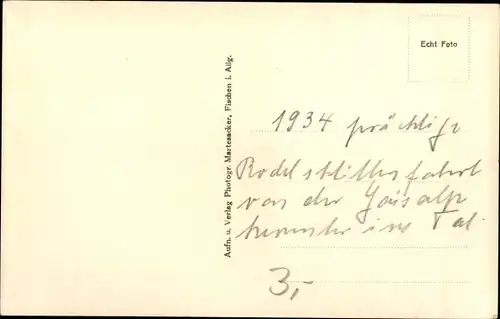 Echt Foto
Aufn. u. Verlag Photogr. Martesacker, Fischen i. Allg.
1934 prächtige
Rodelschlittenfahrt
von der Gaisalp
herunter ins Tal
3,-